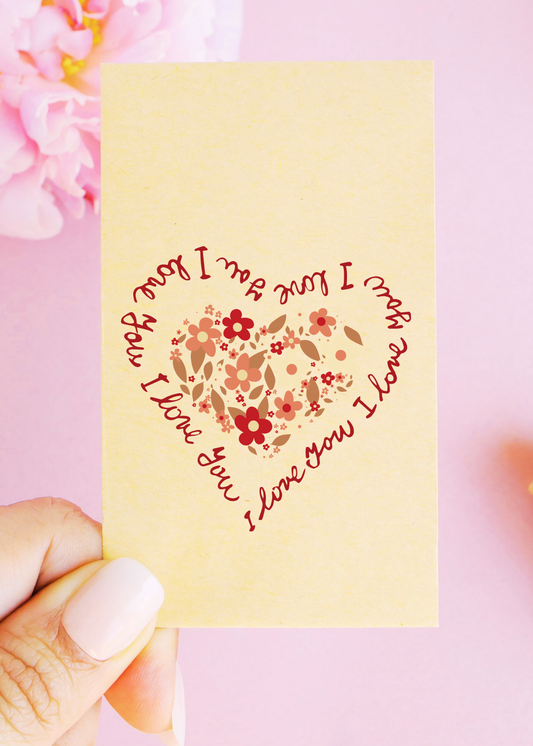 I love you
I love you
I love you
I love you
I love you